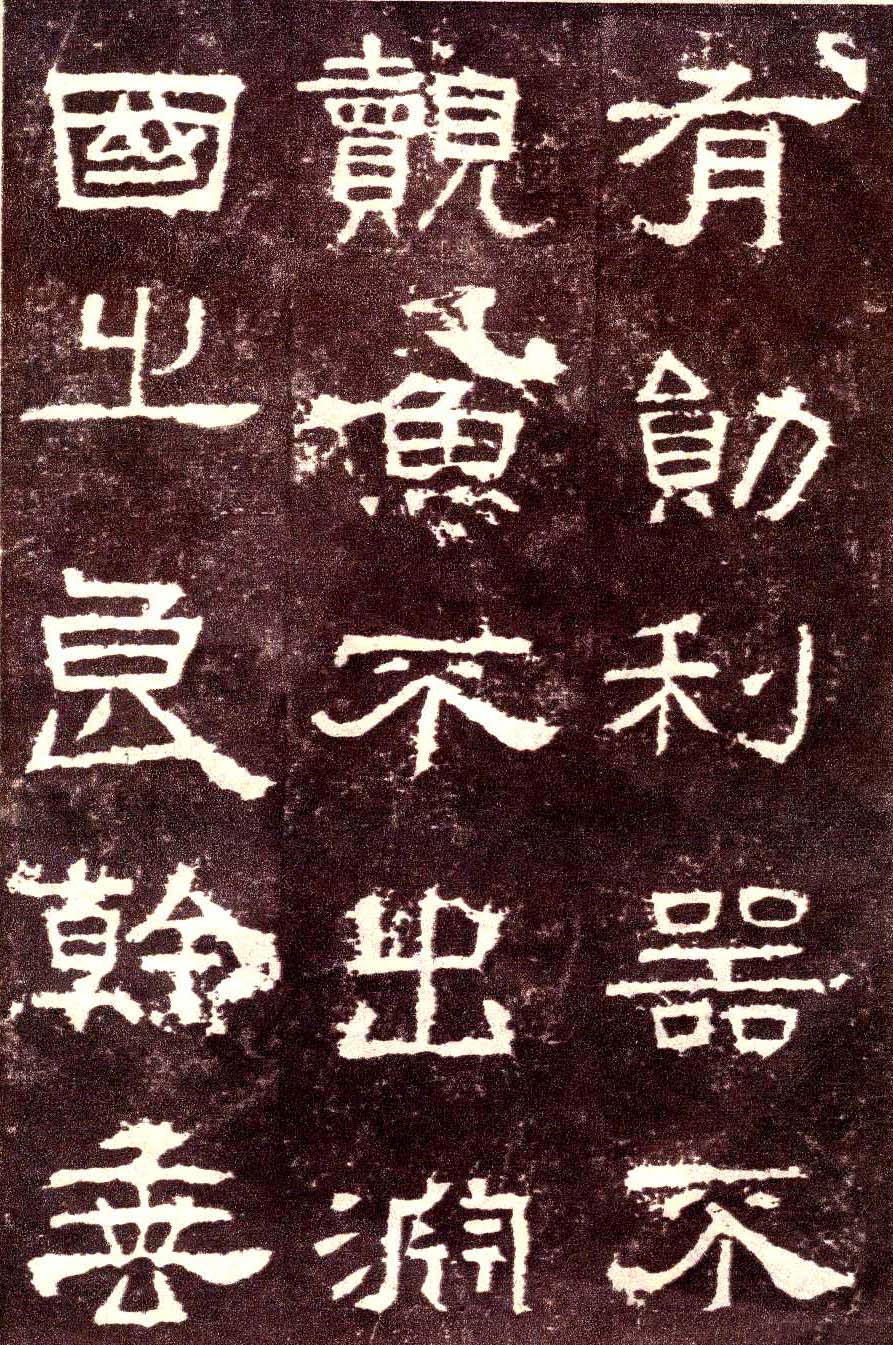 有勛利器不
覿魚不出淵
國之良幹垂